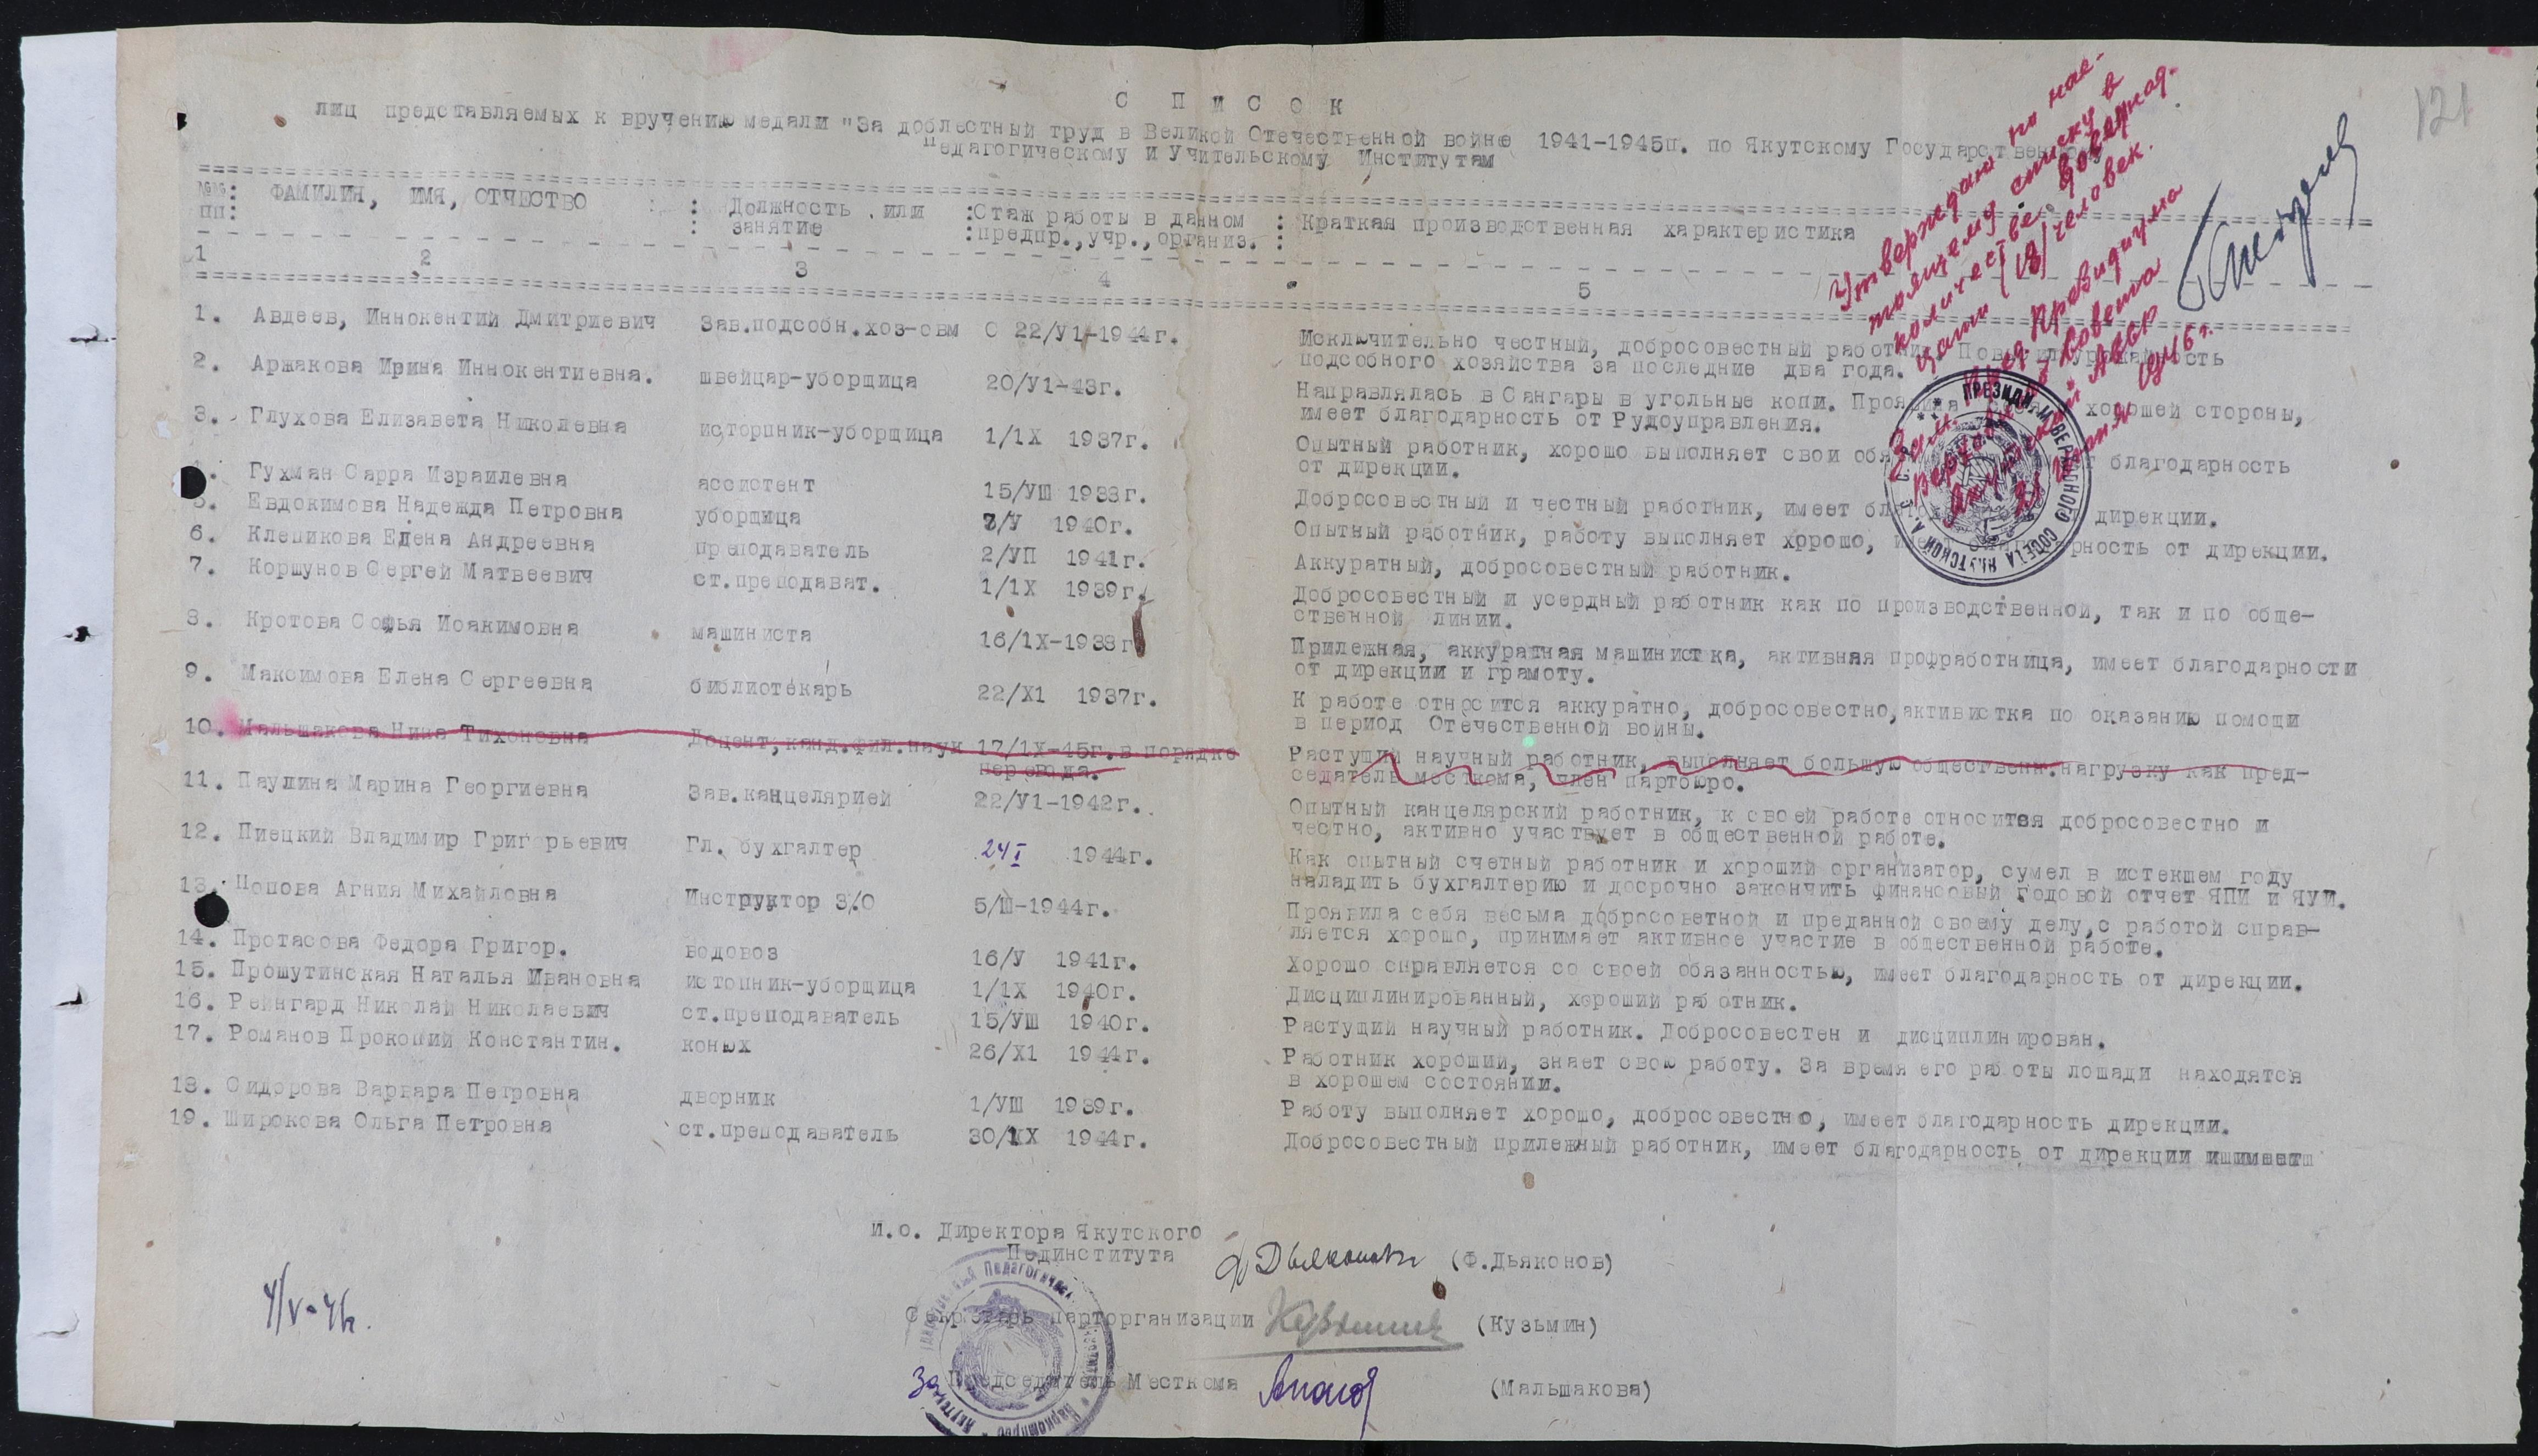 121
С П И С О К
лиц представляемых к вручению медали "За доблестный труд в Великой Отечественной войне 1941-1945гг. по Якутскому Государственному
Педагогическому и Учительскому Институтам
№№ пп: ФАМИЛИЯ, ИМЯ, ОТЧЕСТВО : Должность или занятие : Стаж работы в данном предпр.,учр.,организ. : Краткая производственная характеристика
1 2 3 4 5
1. Авдеев, Иннокентий Дмитриевич Зав.подсобн.хоз-овм С 22/У1-1944г. Исключительно честный, добросовестный работник. Повысил урожайность
подсобного хозяйства за последние два года.
2. Аржакова Ирина Иннокентиевна. швейцар-уборщица 20/У1-43г. Направлялась в Сангары в угольные копи. Проявила себя с хорошей стороны,
имеет благодарность от Рудоуправления.
3. Глухова Елизавета Николевна истопник-уборщица 1/1Х 1937г. Опытный работник, хорошо выполняет свои благодарность
от дирекции.
4. Гухман Сарра Израилевна ассистент 15/УШ 1938г. Добросовестный и честный работник, имеет дирекции.
5. Евдокимова Надежда Петровна уборщица 7/У 1940г. Опытный работник, работу выполняет хорошо, имеет благодарность от дирекции.
6. Клепикова Елена Андреевна преподаватель 2/УП 1941г. Аккуратный, добросовестный работник.
7. Коршунов Сергей Матвеевич ст.преподават. 1/1Х 1939г. Добросовестный и усердный работник как по производственной, так и по обще-
ственной линии.
8. Кротова Софья Иоакимовна машиниста 16/1Х-1938г Прилежная, аккуратная машинистка, активная профработница, имеет благодарности
от дирекции и грамоту.
9. Максимова Елена Сергеевна библиотекарь 22/Х1 1937г. К работе относится аккуратно, добросовестно,активистка по оказанию помощи
в период Отечественной войны.
10. Мальшакова Нина Тихоновна Доцент,канд.фил.наук 17/1Х-45г.в порядке Растущий научный работник, выполняет большую общественн.нагрузку как пред-
перевода. седатель месткома, член партбюро.
11. Паулина Марина Георгиевна Зав.канцелярией 22/У1-1942г. Опытный канцелярский работник, к своей работе относится добросовестно и
честно, активно участвует в общественной работе.
12. Пиецкий Владимир Григорьевич Гл. бухгалтер 24 I 1944г. Как опытный счетный работник и хороший организатор, сумел в истекшем году
наладить бухгалтерию и досрочно закончить финансовый годовой отчет ЯПИ и ЯУИ.
13. Попова Агния Михайловна Инструктор З/О 5/Ш-1944г. Проявила себя весьма добросоветной и преданной своему делу,с работой справ-
ляется хорошо, принимает активное участие в общественной работе.
14. Протасова Федора Григор. водовоз 16/У 1941г. Хорошо справляется со своей обязанностью, имеет благодарность от дирекции.
15. Прошутинская Наталья Ивановна истопник-уборщица 1/1Х 1940г. Дисциплинированный, хороший работник.
16. Рейнгард Николай Николаевич ст.преподаватель 15/УШ 1940г. Растущий научный работник. Добросовестен и дисциплинирован.
17. Романов Прокопий Константин. конюх 26/Х1 1944г. Работник хороший, знает свою работу. За время его работы лошади находятся
в хорошем состоянии.
18. Сидорова Варвара Петровна дворник 1/УШ 1939г. Работу выполняет хорошо, добросовестно, имеет благодарность дирекции.
19. Широкова Ольга Петровна ст.преподаватель 30/1Х 1944г. Добросовестный прилежный работник, имеет благодарность от дирекции
Утверждаю по нас-
тоящему списку в
количестве восемнад-
цати /18/ человек.
Зам. Пред Президиума
Верховного Совета
Якутской АССР
1946 г.
ПРЕЗИДИУМ ВЕРХОВНОГО СОВЕТА ЯКУТСКОЙ А.С.С.Р.
И.о. Директора Якутского
Пединститута Ф Дьяконов (Ф.Дьяконов)
Секретарь парторганизации Кузьмин (Кузьмин)
За Председатель Месткома (Мальшакова)
4/V-46г.